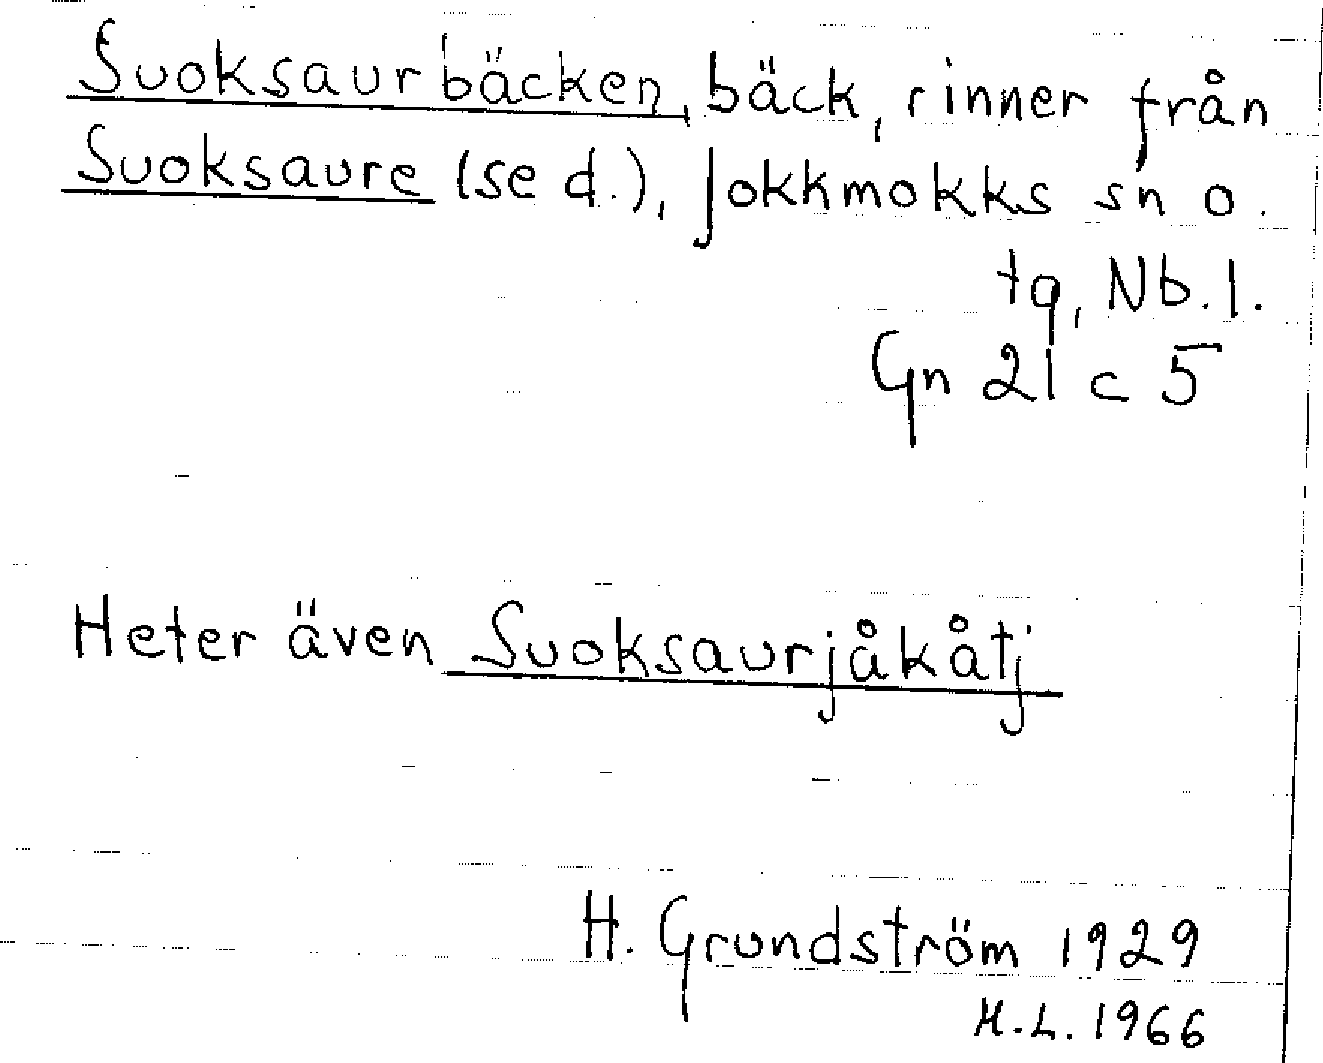 Suoksaurbäcken, bäck, rinner från
Suoksaure (se d.), Jokkmokks sn o.
tg, Nb.l.
Gn 21 c 5
Heter även Suoksaurjåkåtj
H. Grundström 1929
H.L. 1966